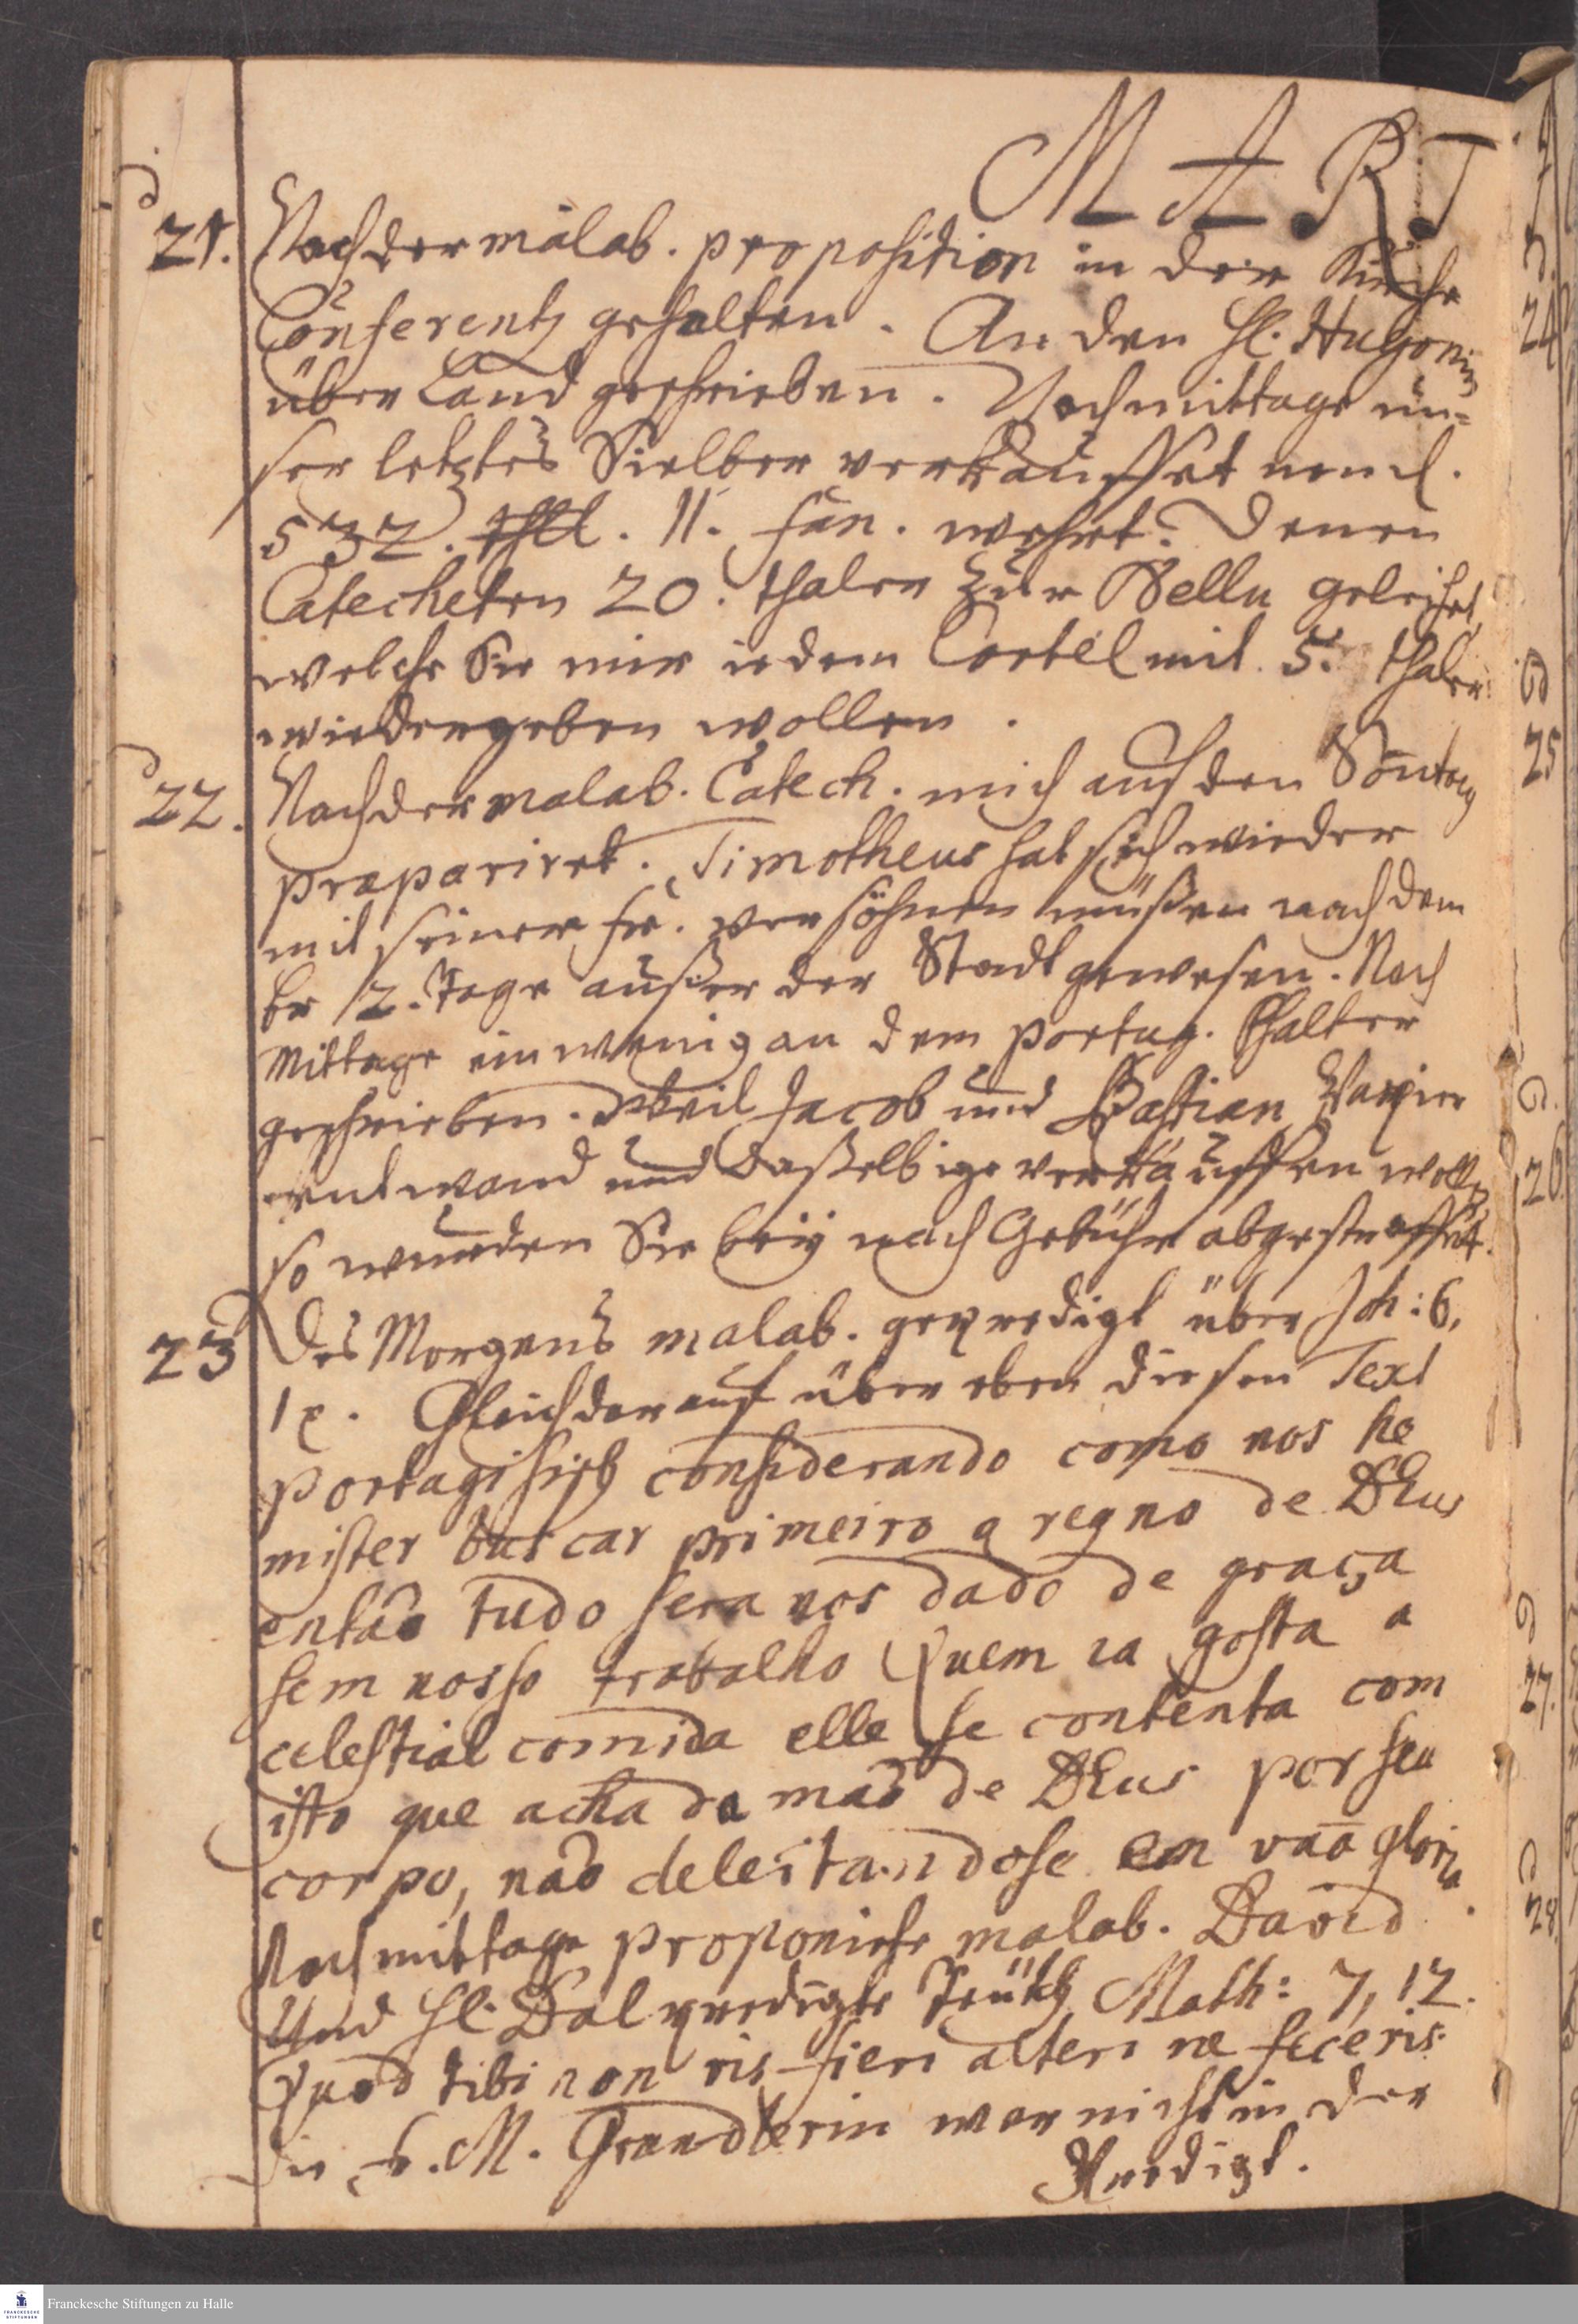 MARTJ
21. Nach der malab. proposition in der Kirche
Conferentz gehalten. An den H. Hugonis
über Land geschrieben. Nachmittage un=
ser letztes Sielber verkauffet neml.
532. thll. 11. fan. wehrt. Denen
Catecheten 20. thaler zur geleihet,
welche Sie mir iedem Cartel mit 5. thaler
wiedergeben wollen.
22. Nach der malab. Catech. mich auf den Sontag
præpariret. Timotheus hat sich wieder
mit seiner fr. versöhnen müßen nach dem
Er 12. Tage außer der Stadt gewesen. Nach
Mittage ein wenig an dem portug. Psalter
geschrieben. Weil Jacob und Bastian Papier
entwand und daßelbige verkauffen wollen
so wurden Sie beÿ nach Gebühr abgestraffet.
23 Des Morgens malab. geprediget über Joh: 6,
1 ꝛc. Gleich darauf über eben diesen Text
Portugisisch considerando como nos he
mister buscar primeiro o regno de DEus
entaõ tudo sera nos dado de graça
sem nosso trabalho Quem ia gosta a
celestial comida elle se contenta com
isto que acha da maõ de DEus por seu
corpo, naõ deleitandose em vaã gloria.
Nachmittage proponirte malab. David
Und H. Dal predigte Teütsch Math: 7, 12.
Quod tibi non vis fieri alteri ne feceris.
Die fr. M. Gründlerin war nicht in der
Predigt.
24
25
26
27.
28.
Franckesche Stiftungen zu Halle